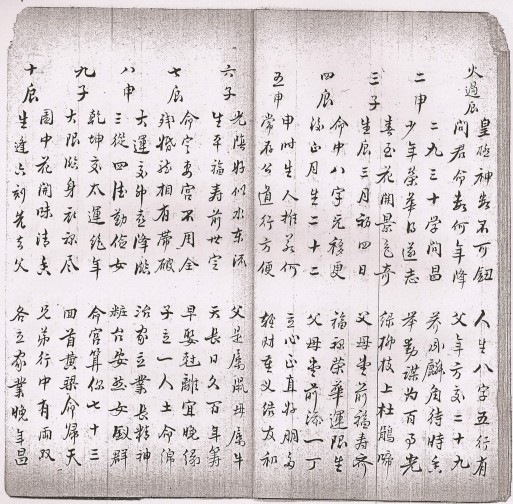 火過辰
皇極神數不可輕 人生八字五行有
問君命數何年降 父年方交二十九
二申
二九三十學問昌 養成麟角待時香
少年榮華得遂志 舉動謀為百事光
三子
春至花開景色奇 綠柳枝上杜鵑啼
生辰三月初四日 父母堂前福壽齊
四辰
命中八字元移更 福祿榮華運限生
後正月生二十二 父母堂前添一丁
五申
申時生人推若何 立心正直好朋多
常存公道行方便 輕財重義結友和
六子
光陰好似水東流 父是屬鼠母屬牛
生平福壽前世定 天長日久百年籌
七辰
命定妻宮不周全 早娶尅離宜晚緣
殘婚相有帶破 子立一人土命綿
八申
大運交卯喜降臨 治家立業長精神
三從四德勤儉女 粧台安然女國群
九子
乾坤交太運絕年 命宮算你七十三
大限臨身衣祿尽 四首黃粱命歸天
十辰
園中花開味清香 兄弟行中有兩双
生逢六刻先克父 各立家業晚年昌